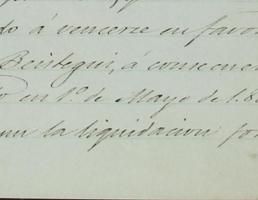 do á vencerse en favor
Beistegui, á consecuen
o en 1º de Mayo de 18
un la liquidacion for